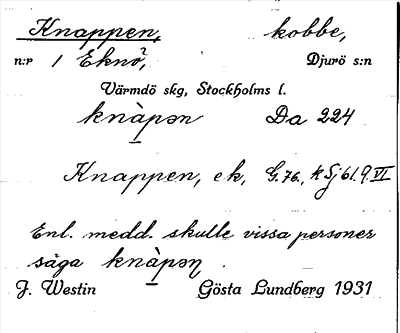 Knappen, kobbe,
n:r 1 Eknö, Djurö s:n
Värmdö skg, Stockholms l.
knàpən Da 224
Knappen, ek, G. 76, k Sj 61.9.VI
Enl. medd. skulle vissa personer
säga knàpən.
J. Westin Gösta Lundberg 1931